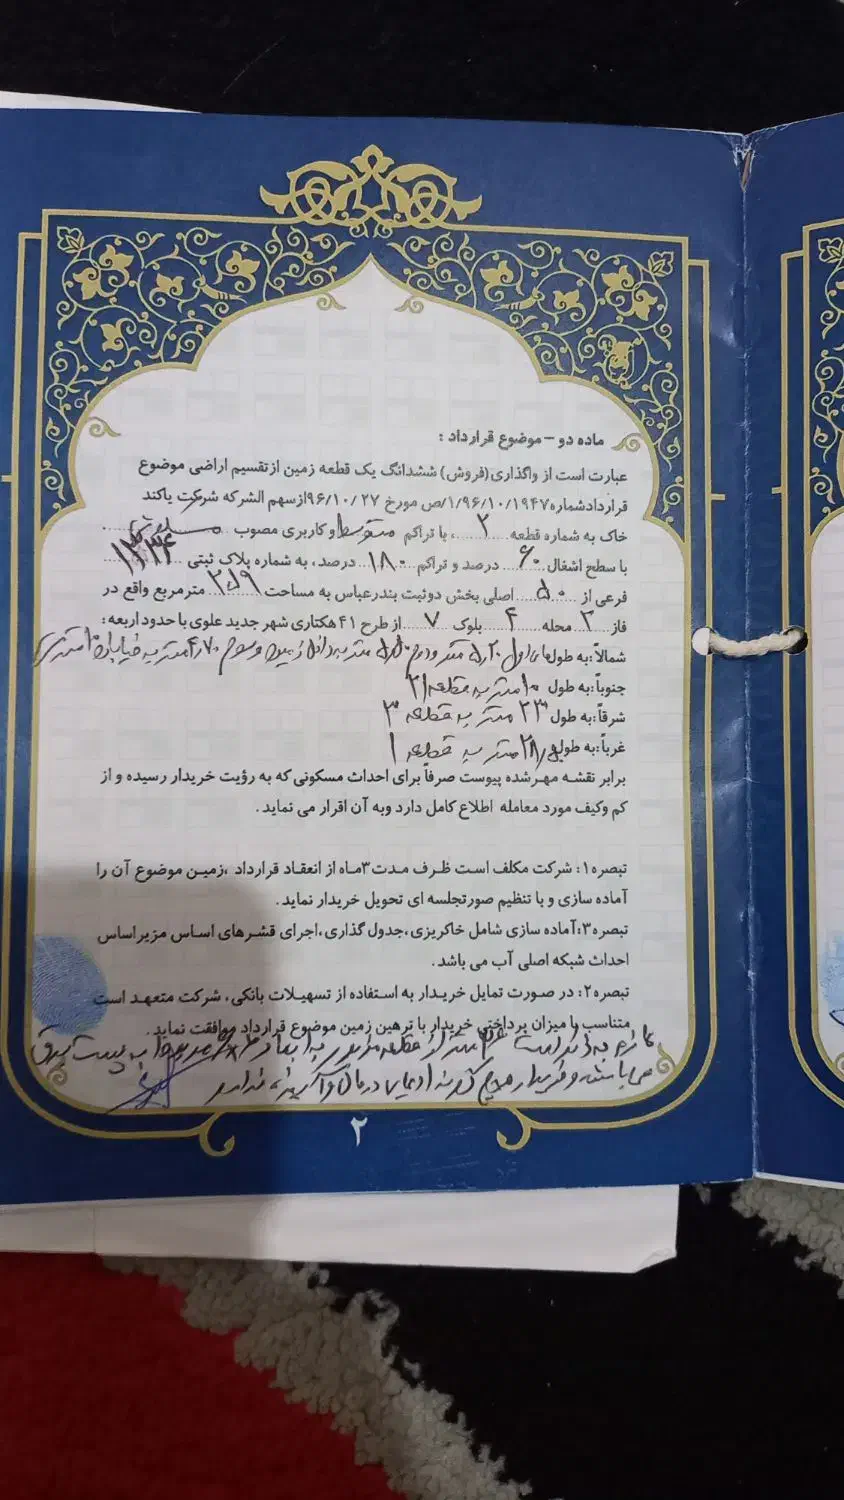 ماده دو – موضوع قرارداد :
عبارت است از واگذاری(فروش) ششدانگ یک قطعه زمین ازتقسیم اراضی موضوع
قراردادشماره۱/۹۶/۱۰/۱۹۴۷/ص مورخ ۹۶/۱۰/۲۷ازسهم الشرکه شرکت یاکند
خاک به شماره قطعه ۲ ، با تراکم متوسط و کاربری مصوب مسکونی
با سطح اشغال ۶۰ درصد و تراکم ۱۸۰ درصد، به شماره پلاک ثبتی ۱۲۳۴
فرعی از ۵۰ اصلی بخش دوثبت بندرعباس به مساحت مترمربع واقع در
فاز ۲ محله ۴ بلوک ۷ از طرح ۴۱ هکتاری شهر جدید علوی با حدود اربعه:
شمالاً: به طول های اول ۵٫۲۰ متر و دوم متر به داخل زمین و سوم ۴٫۷۰ متر به خیابان ۱۰ متری
جنوباً: به طول ۱۰ متر به قطعه ۲۱
شرقاً: به طول ۲۳ متر به قطعه ۳
غرباً: به طول متر به قطعه ۱
برابر نقشه مهرشده پیوست صرفاً برای احداث مسکونی که به رؤیت خریدار رسیده و از
کم وکیف مورد معامله اطلاع کامل دارد وبه آن اقرار می نماید.
تبصره۱: شرکت مکلف است ظرف مدت۳ماه از انعقاد قرارداد ،زمین موضوع آن را
آماده سازی و با تنظیم صورتجلسه ای تحویل خریدار نماید.
تبصره۳:آماده سازی شامل خاکریزی،جدول گذاری،اجرای قشرهای اساس مزیراساس
احداث شبکه اصلی آب می باشد.
تبصره۲: در صورت تمایل خریدار به استفاده از تسهیلات بانکی، شرکت متعهد است
متناسب با میزان پرداختی خریدار با ترهین زمین موضوع قرارداد موافقت نماید.
لازم به ذکر است متر از قطعه مزبور به ابعاد به پست برق
می باشد و خریدار هیچ گونه ادعایی در حال و آینده ندارد
۲